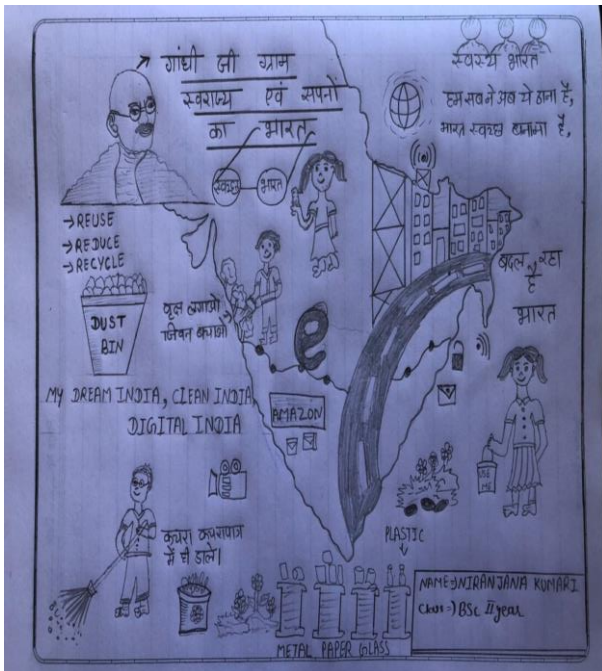 गांधी जी ग्राम
स्वराज्य एवं सपनों
का भारत
स्वच्छ भारत
स्वस्य भारत
हम सब ने अब ये ठाना है,
भारत स्वच्छ बनाना है,
→REUSE
→REDUCE
→RECYCLE
DUST
BIN
वृक्ष लगाओ
जिवन बचाओ
बदल रहा
है
भारत
e
MY DREAM INDIA, CLEAN INDIA,
DIGITAL INDIA
AMAZON
कचरा कचरापात्र
में ही डालें।
PLASTIC
METAL PAPER GLASS
NAME:→NIRANJANA KUMARI
Class:→ BSc II year